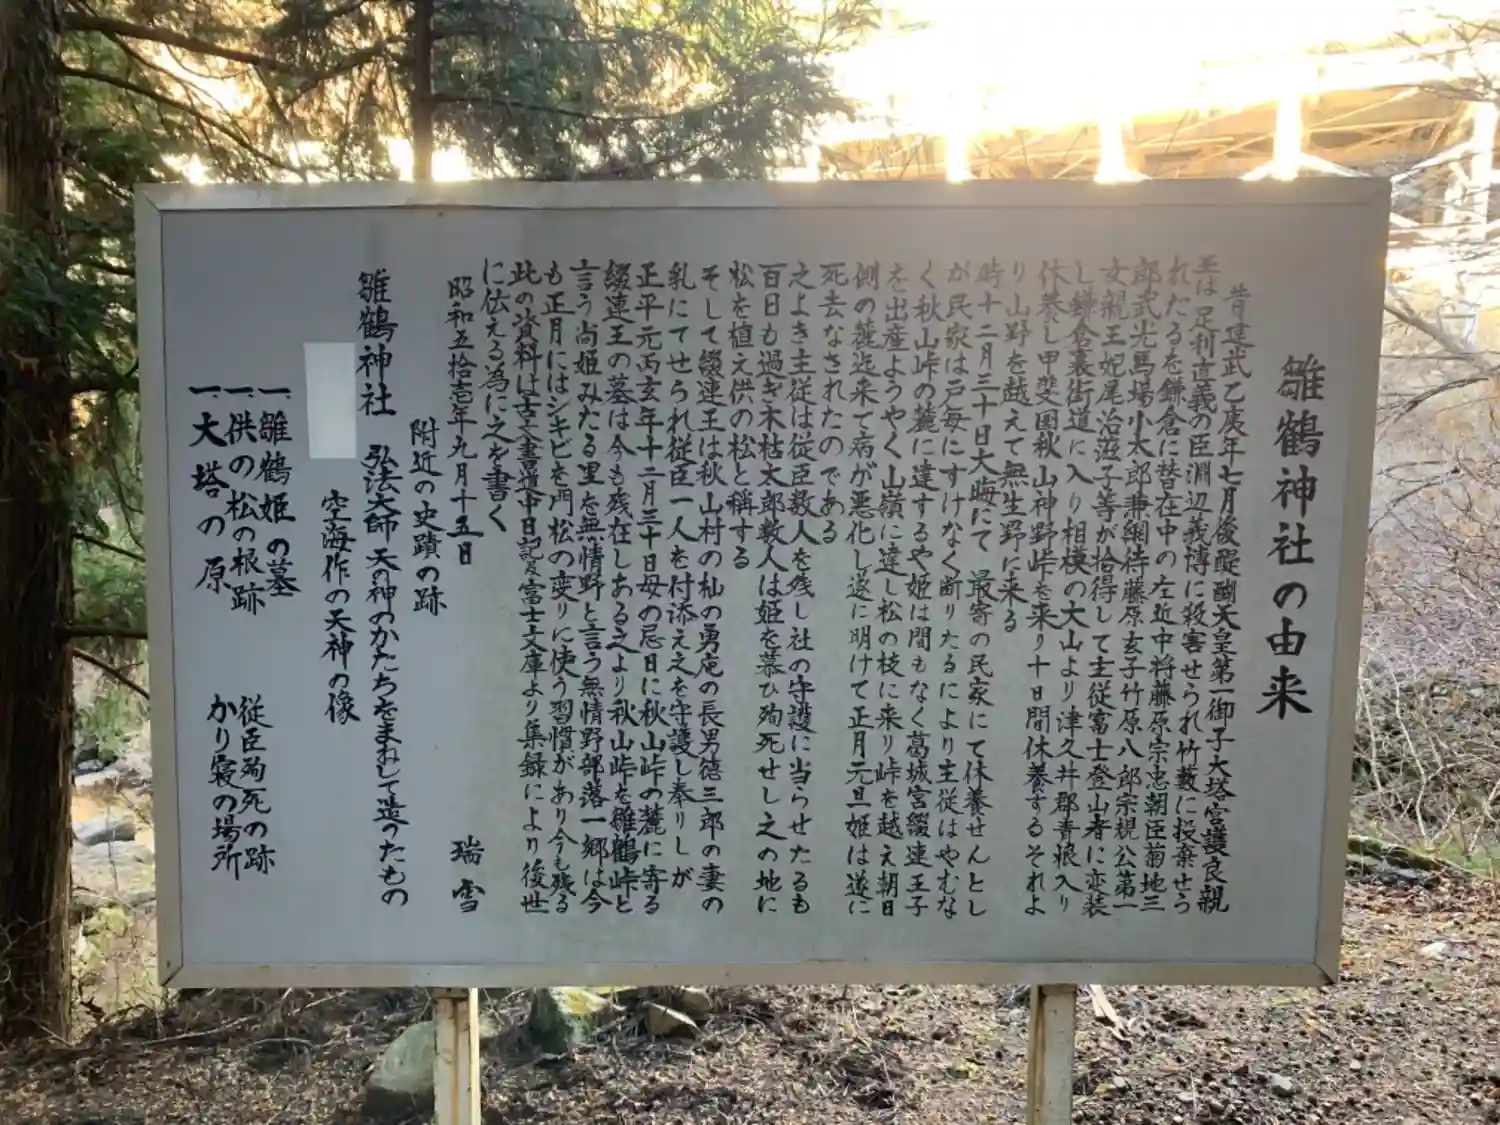 雛鶴神社の由来
昔建武乙庚年七月後醍醐天皇第一御子大塔宮護良親
王は足利直義の臣淵辺義博に殺害せられ竹藪に投棄せら
れたるを鎌倉に替在中の左近中将藤原宗忠朝臣菊地三
郎武光馬場小太郎兼綱待藤原玄子竹原八郎宗規公第一
女親王妃尾治滋子等が拾得して主従富士登山者に変装
し鎌倉裏街道に入り相模の大山より津久井郡青根入り
休養し甲斐国秋山神野峠を来り十日間休養するそれよ
り山野を越えて無生野に来る
時十二月三十日大晦にて最寄の民家にて休養せんとし
が民家は戸毎にすけなく断りたるにより主従はやむな
く秋山峠の麓に達するや姫は間もなく葛城宮綴連王子
を出産ようやく山嶺に達し松の枝に来り峠を越え朝日
側の麓迄来て病が悪化し遂に明けて正月元旦姫は遂に
死去なされたのである
之よき主従は従臣数人を残し社の守護に当らせたるも
百日も過ぎ木枯太郎数人は姫を慕ひ殉死せし之の地に
松を植え供の松と稱する
そして綴連王は秋山村の杣の勇庵の長男徳三郎の妻の
乳にてせられ従臣一人を付添え之を守護し奉りしが
正平元丙玄年十二月三十日母の忌日に秋山峠の麓に寄る
綴連王の墓は今も残在しある之より秋山峠を雛鶴峠と
言う尚姫みたる里を無情野と言う無情野部落一郷は今
も正月にはシキビを門松の変りに使う習慣があり今も残る
此の資料は古文書並中日記及富士文庫より集録により後世
に伝える為に之を書く
昭和五拾壱年九月十五日 瑞雪
附近の史蹟の跡
雛鶴神社 弘法大師 天の神のかたちをまねして造ったもの
空海作の天神の像
一、雛鶴姫の墓
一、供の松の根跡 従臣殉死の跡
一、大塔の原 かり寝の場所